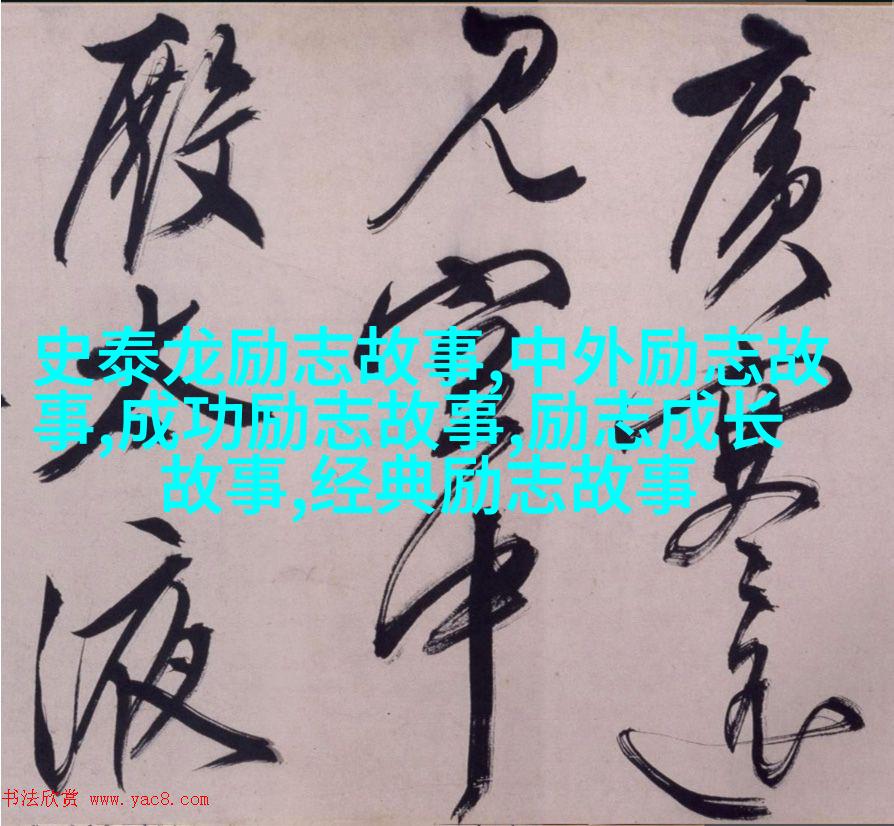 廣寒遥
見空中
殿太液
史泰龙励志故事,中外励志故
事,成功励志故事,励志成长
故事,经典励志故事
书法欣赏 www.yac8.com